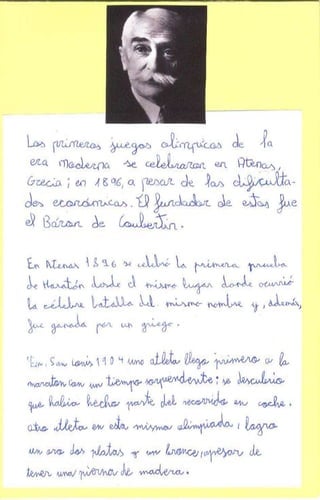 Los primeros juegos olimpicos de la
era moderna se celebraran en Atenas,
Grecia; en 1896, a pesar de las dificulta-
des economicas. El fundador de estos fue
el Báron de Coubertin.
En Atenas 1896 se celebró la primera prueba
de Maratón desde el mismo lugar donde ocurrió
la célebre batalla del mismo nombre y, además,
fue ganada por un griego.
En San Louis 1904 una atleta llego primero a la
maraton con un tiempo sorprendente: se descubrio
que habia hecho parte del recorrido en coche.
otro atleta en esta misma olimpiada, logra
un oro dos platas y un bronce, apesar de
tener una pierna de madera.